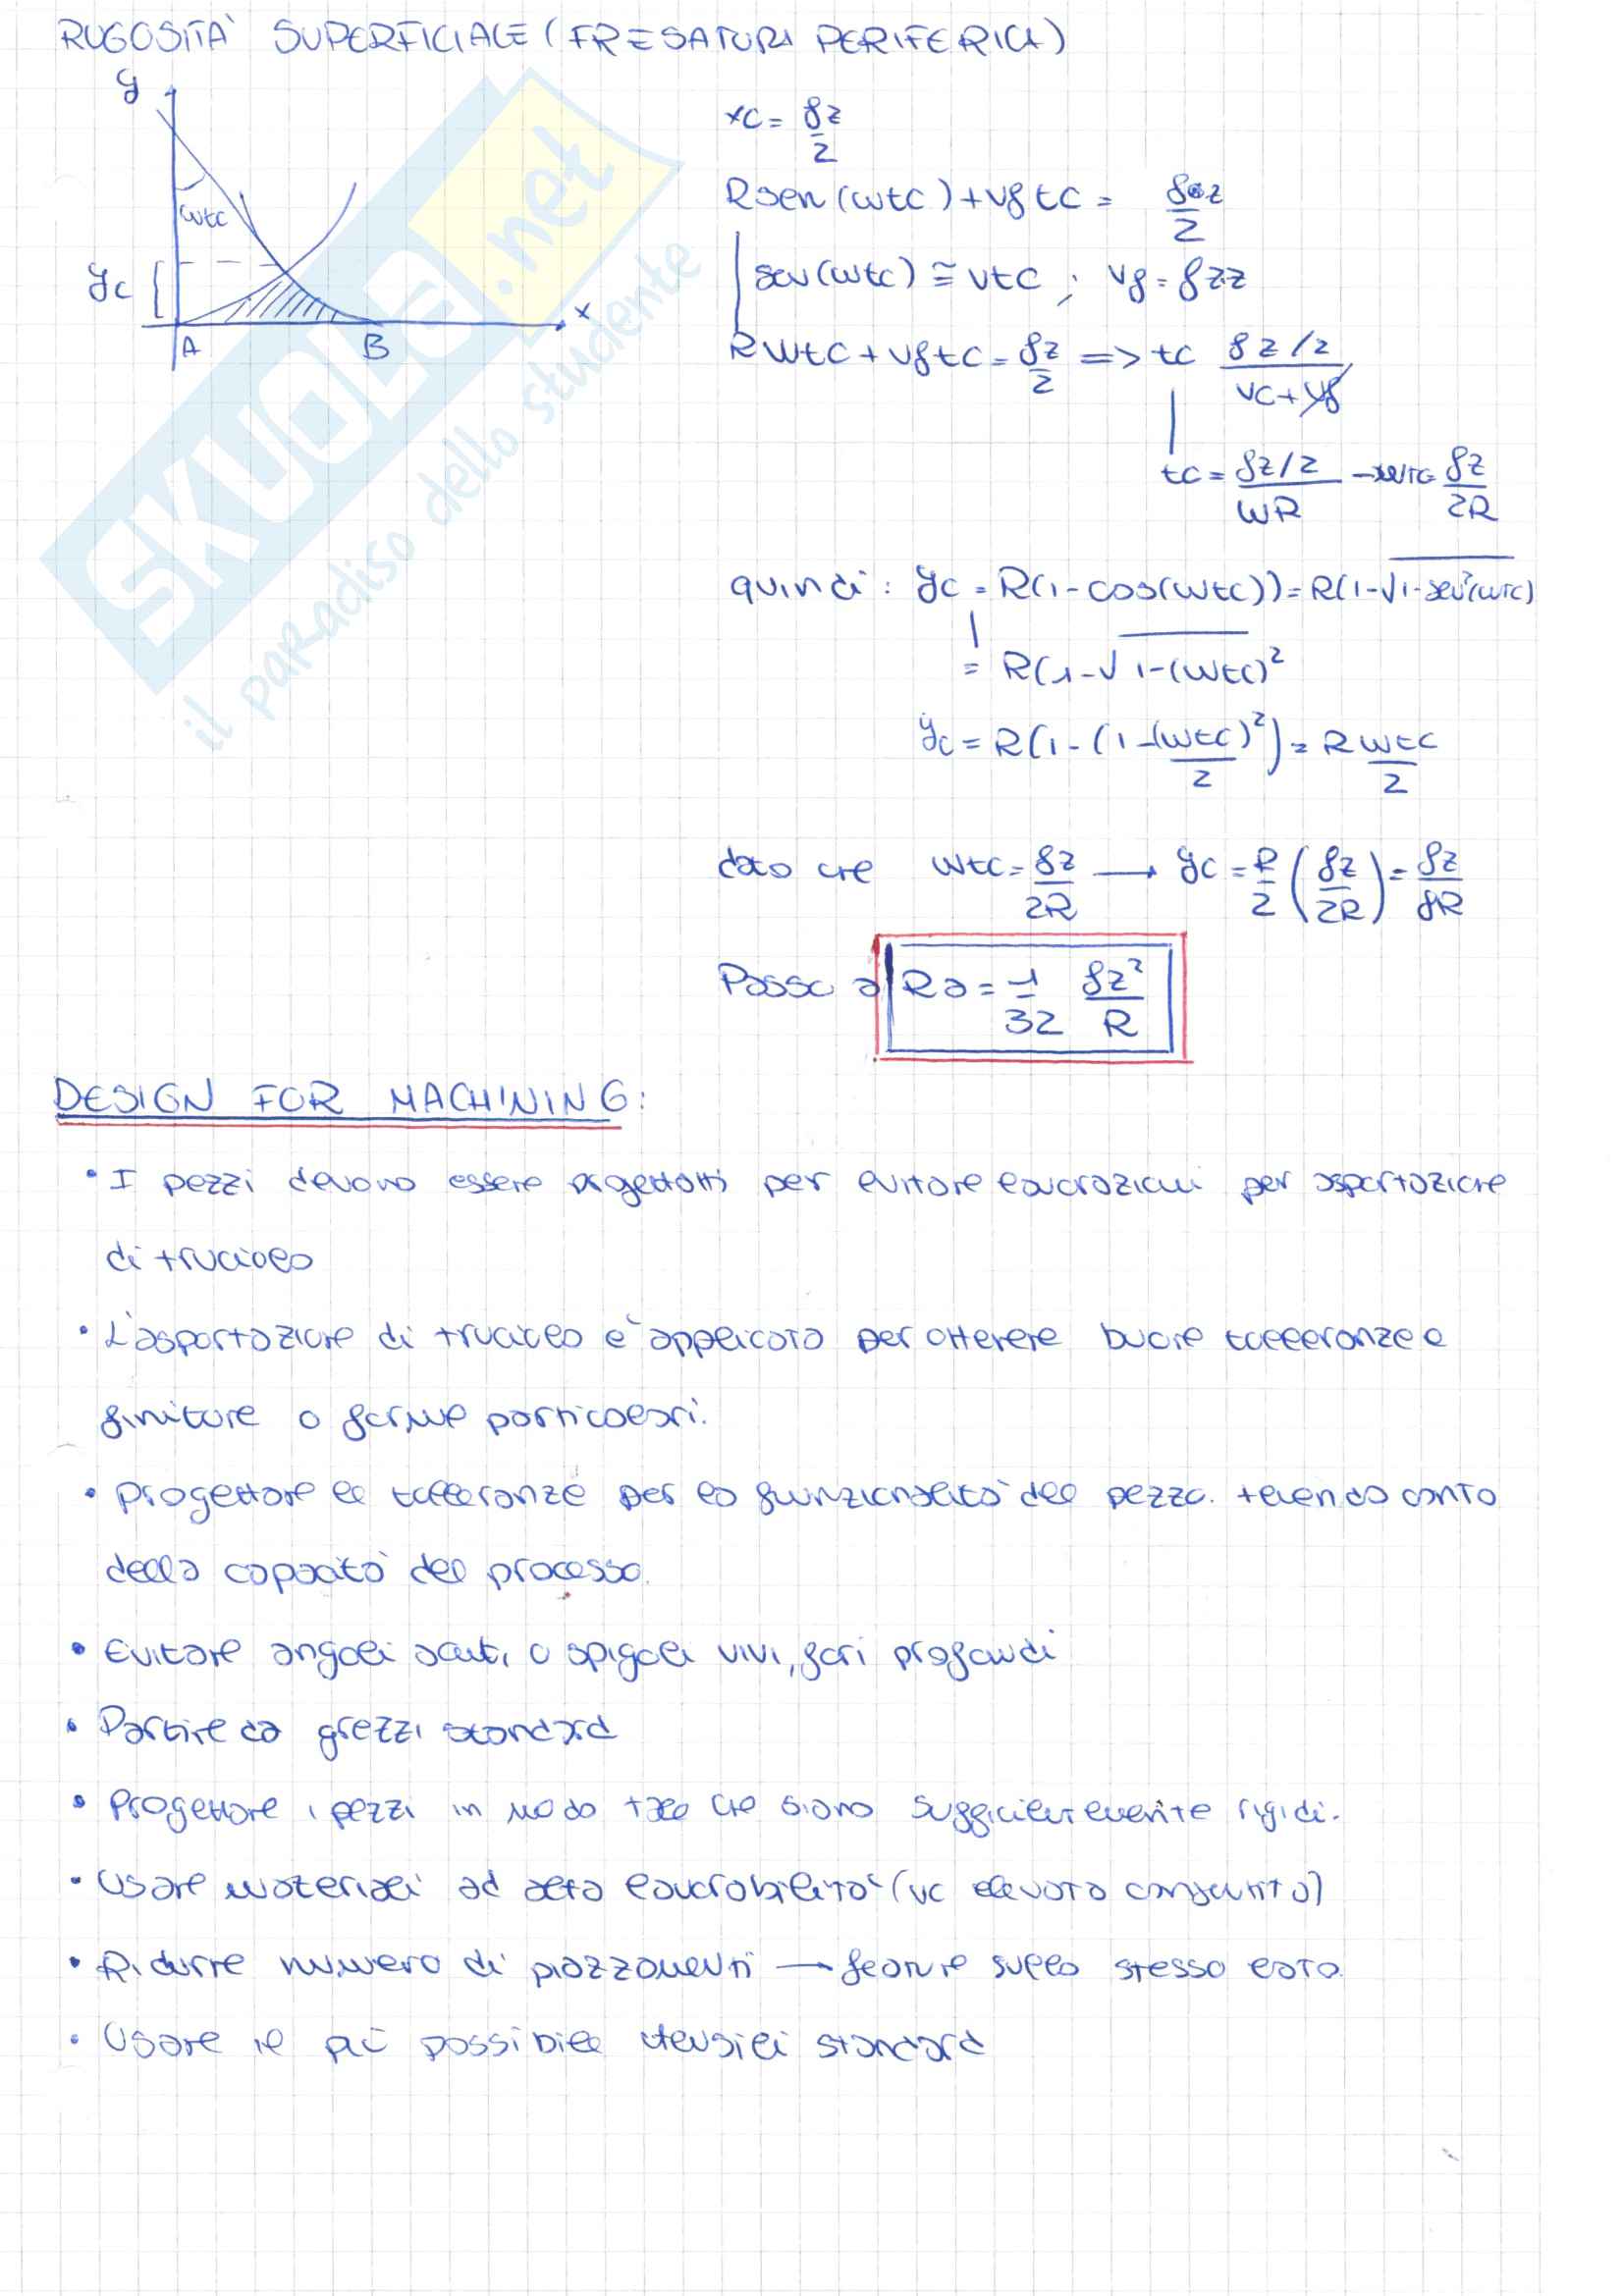 RUGOSITÀ SUPERFICIALE (FRESATURA PERIFERICA)
y
ωtc
yc
A
B
x
xc = fz/2
Rsen(ωtc) + vf tc = fz/2
sen(ωtc) ≅ vtc ; vf = fzz
Rωtc + vftc = fz/2 => tc (fz/2)/(vc+vf)
tc = (fz/2)/(ωR) → ωtc fz/2R
quindi: yc = R(1-cos(ωtc)) = R(1-√1-sen²(ωtc)
= R(1-√1-(ωtc)²
yc = R(1-(1-(ωtc)²/2) = R ωtc/2
dato che ωtc = fz/2R → yc = R/2 (fz/2R) = fz/8R
Passo a Ra = 1/32 fz²/R
DESIGN FOR MACHINING:
• I pezzi devono essere progettati per evitare lavorazioni per asportazione
di truciolo
• L'asportazione di truciolo è applicata per ottenere buone tolleranze e
finiture o forme particolari.
• Progettare le tolleranze per la funzionalità del pezzo. tenendo conto
della capacità del processo.
• Evitare angoli acuti, o spigoli vivi, fori profondi
• Partire da grezzi standard
• Progettare i pezzi in modo tale che siano sufficientemente rigidi.
• Usare materiali ad alta lavorabilità (vc elevata congiunta)
• Ridurre numero di piazzamenti → feature sullo stesso lato
• Usare il più possibile utensili standard
SKUOLA.net
il paradiso dello studente